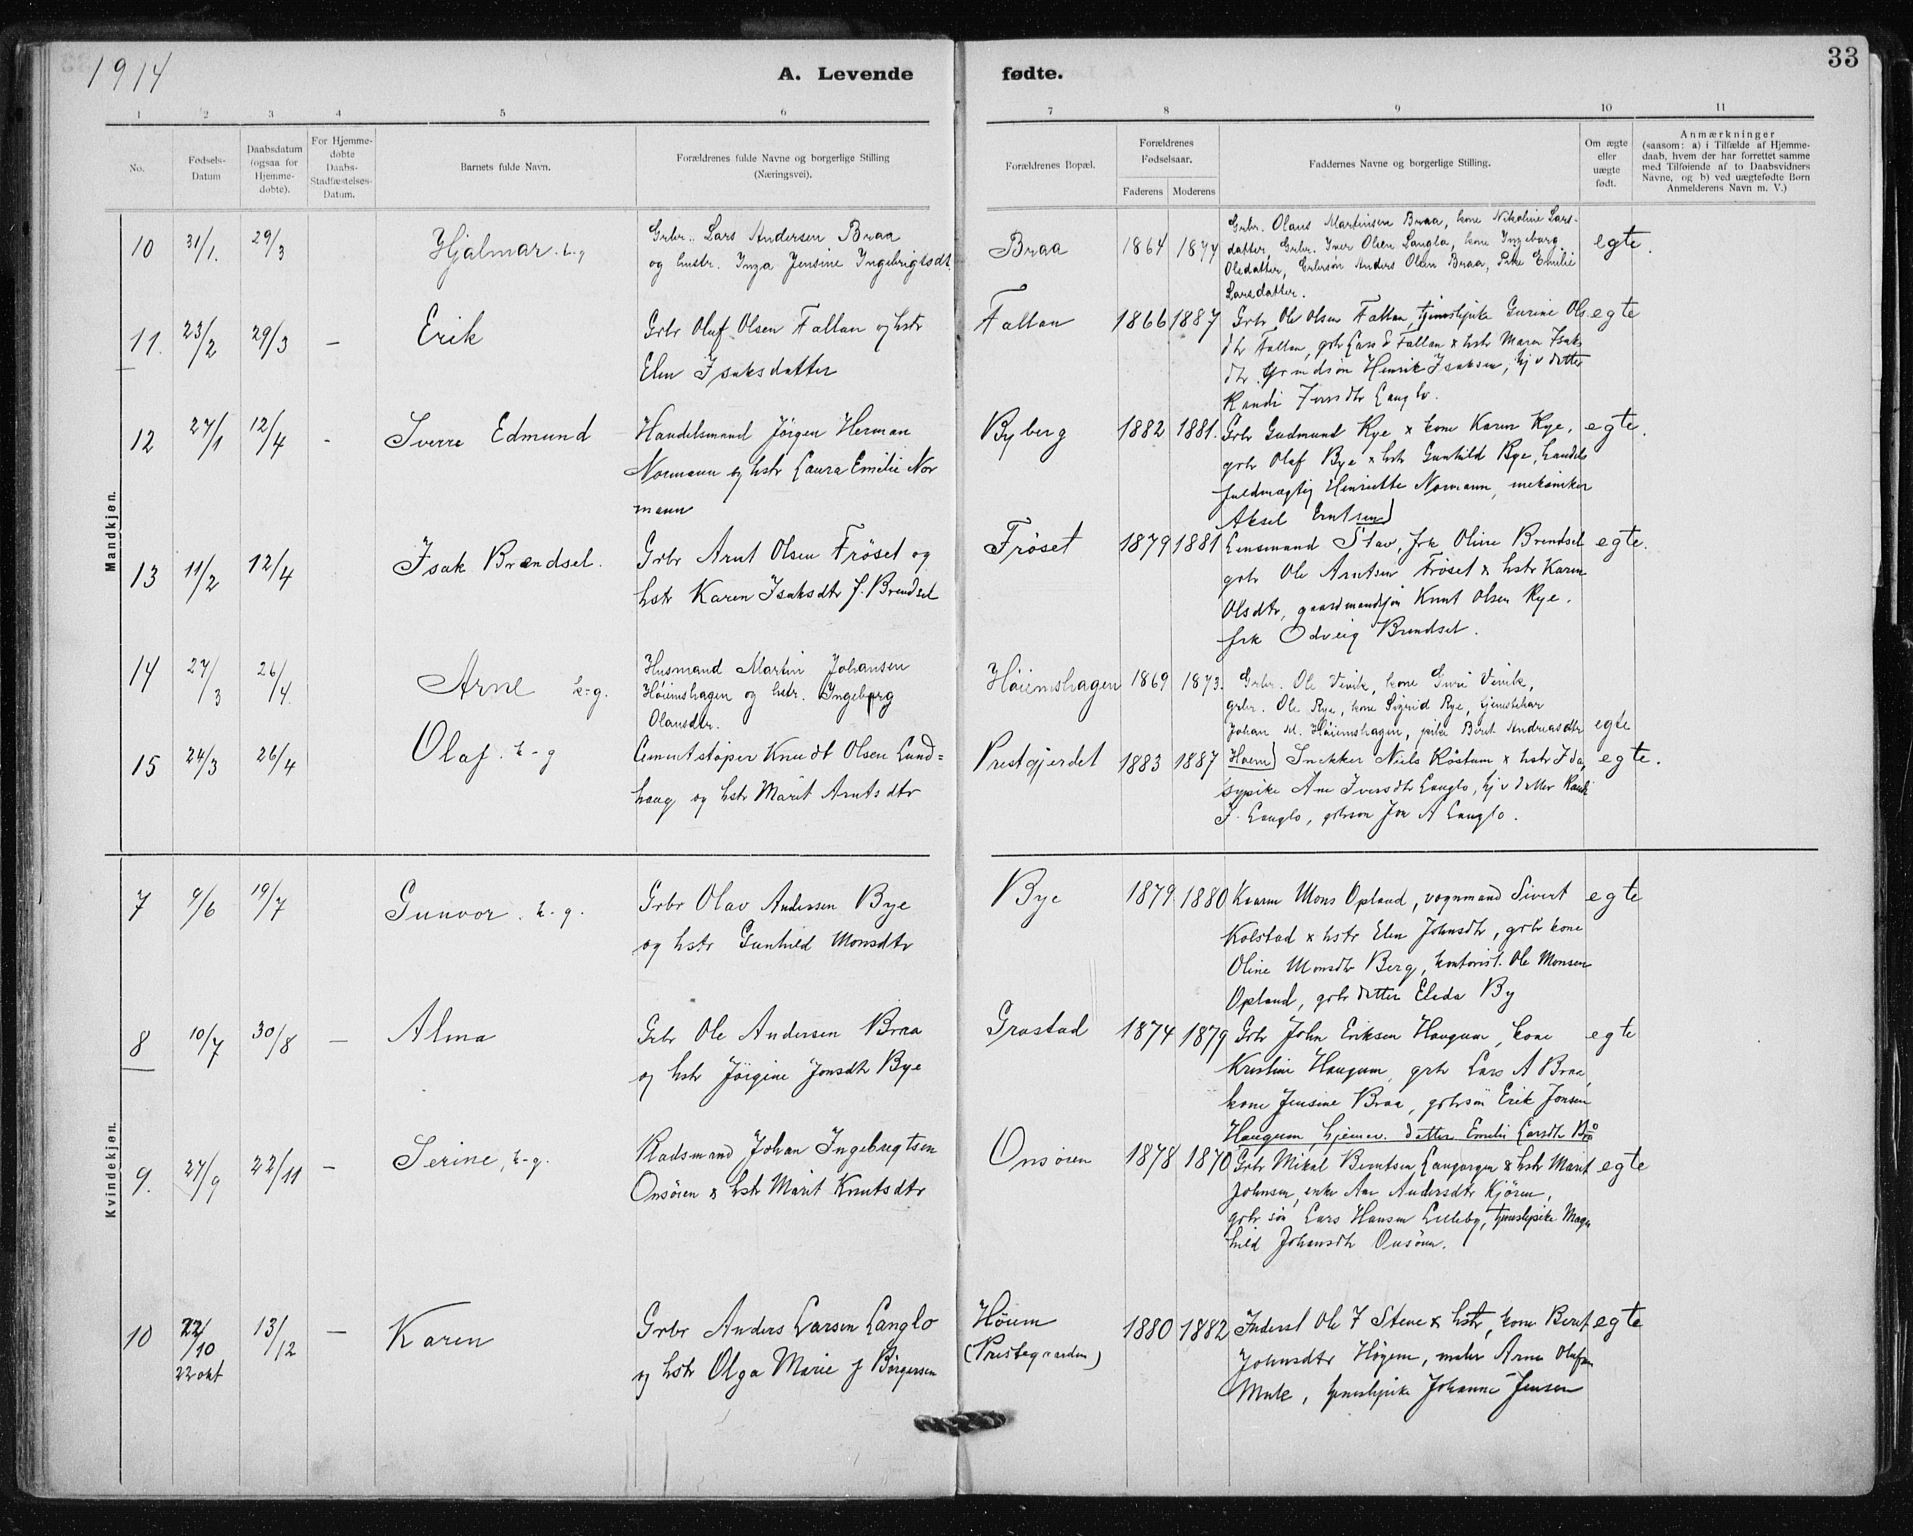 1914
A. Levende
fødte.
33
1 2 3 4 5 6 7 8 9 10 11
No.
Fødsels-
Datum
Daabsdatum
(ogsaa for
Hjemme-
døbte).
For Hjemme-
døbte
Daabs-
Stadfæstelses-
Datum.
Barnets fulde Navn.
Forældrenes fulde Navne og borgerlige Stilling
(Næringsvei).
Forældrenes Bopæl.
Forældrenes
Fødselsaar.
Faderens Moderens
Faddernes Navne og borgerlige Stilling.
Om ægte
eller
uægte
født.
Anmærkninger
(saasom: a) i Tilfælde af Hjemme-
daab, hvem der har forrettet samme
med Tilføiende af to Daabsvidners
Navne, og b) ved uægtefødte Børn
Anmelderens Navn m. V.)
Mandkjøn.
10 31/1. 29/3 Hjalmar. k-g
Grbr. Lars Andersen Braa
og hustr. Inga Jensine Ingebrigtsdt.
Braa 1864 1877
Grbr. Olaus Martinsen Braa, kone Nikoline Lars-
datter, Grbr. Iver Olsen Langlo, kone Ingeborg
Olsdatter, Grbrsøn Anders Olsen Braa, Pike Emilie
Larsdatter.
egte.
11. 23/2 29/3 — Erik
Grbr Oluf Olsen Fallan og hstr
Elen Isaksdatter
Fallan 1866 1887
Grbr Ole Olsen Fallan, tjenestepike Gurine Ols
dtr Fallan, grbr Lars E Fallan x hstr Maren Isaks
dtr. Grmdsøn Henrik Isaksen, hj v datter
Randi Iversdtr Langlo.
egte
12 27/1 12/4 - Sverre Edmund
Handelsmand Jörgen Herman
Normann og hstr Laura Emilie Nor
mann
Byberg 1882 1881.
Grbr Gudmund Rye x kone Karen Rye,
grbr Olaf Bye x hstr Gunhild Bye, handels
fuldmægtig Henriette Normann, mekaniker
Aksel Erntsen)
egte.
13 11/2 12/4 Isak Brendsel.
Grbr Arnt Olsen Fröset og
hstr Karen Isaksdtr f. Brendsel
Fröset 1879 1881
Lensmand Stav, frk Oline Brendsel
grbr Ole Arntsen Fröset x hstr Karen
Olsdtr, gaardmandsøn Knut Olsen Rye.
frk Odveig Brendset.
egte.
14 27/3 26/4 Arne k-g.
Husmand Martin Johansen
Höiemshagen og hstr. Ingeborg
Olausdtr.
Höiemshagen 1869 1873.
Grbr. Ole Vevik, kone Guri Vevik,
grbr. Ole Rye, kone Sigrid Rye, tjenestekar
Johan M. Höiemshagen, pike Berit Andreasdtr
egte
15 24/3 26/4 Olaf. k-g
Cementstöper Knudt Olsen Lund-
haug og hstr Marit Arntsdtr
Prestgjerdet 1883 1887
Hoem) Snekker Niels Röstum x hstr Ida,
sypike Ane Iversdtr Langlo, hj v datter Randi
I. Langlo, grbrsøn Jon A Langlo.
egte.
Kvindekjøn.
7 9/6 19/7 Gunvor. k-g.
Grbr Olav Andersen Bye
og hstr Gunhild Monsdtr
Bye 1879 1880
Kaarm Mons Opland, vognmand Sivert
Kolstad x hstr Elen Johnsdtr, grbr kone
Oline Monsdtr Berg, kontorist. Ole Monsen
Opland, grbr datter Elida By
egte
8 10/7 30/8 — Alma
Grbr Ole Andersen Braa
og hstr Jörgine Jonsdtr Bye
Grostad 1874 1879
Grbr John Eriksen Haugum, kone
Kristine Haugum, grbr Lars A Braa,
kone Jensine Braa, grbrsön Erik Jonsen
Haugum, hjemmev. datter Emilie Larsdtr Brå
egte
9. 27/9 22/11 — Serine, k-g.
Radsmand Johan Ingebrigtsen
Onsöien x hstr Marit Knutsdtr
Onsöien 1878 1870
Grbr Mikal Berntsen Langörgen x hstr Marit
Johnsen, enke Ane Andersdtr Kjören,
grbr sön Lars Hansen Lilleby, tjenestepike Magn
hild Johansdtr Onsöien.
egte
10 22/10 13/12 — Karen
22 okt
Grbr Anders Larsen Langlo
og hstr Olga Marie f Börgersen
Höiem
(Prestegaarden)
1880 1882
Inderst Ole I Stene x hstr, kone Berit
Johnsdtr Högem, maler Arne Olufsen
Mule, tjenestepike Johanne Jensen
egte